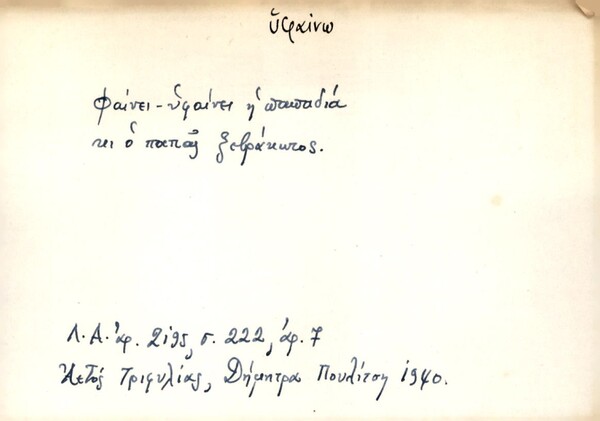 ὑφαίνω
Φαίνει - ὑφαίνει ἡ παπαδιά
κι ὁ παπᾶς ξεβράκωτος.
Λ.Α. ἀρ. 2195, σ. 222, ἀρ. 7
Ἀετός Τριφυλίας, Δήμητρα Πουλίτση 1940.